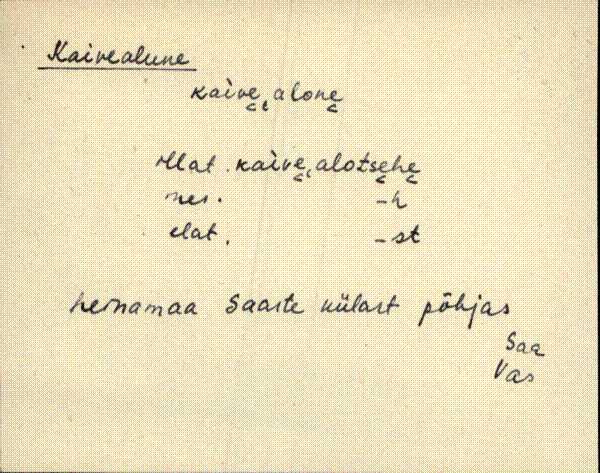 Kaivealune
kaive̬,alone̬
illat. kaive̬,alotse̬he̬
ines. -h
elat. -st
heinamaa Saaste külast põhjas
Saa
Vas